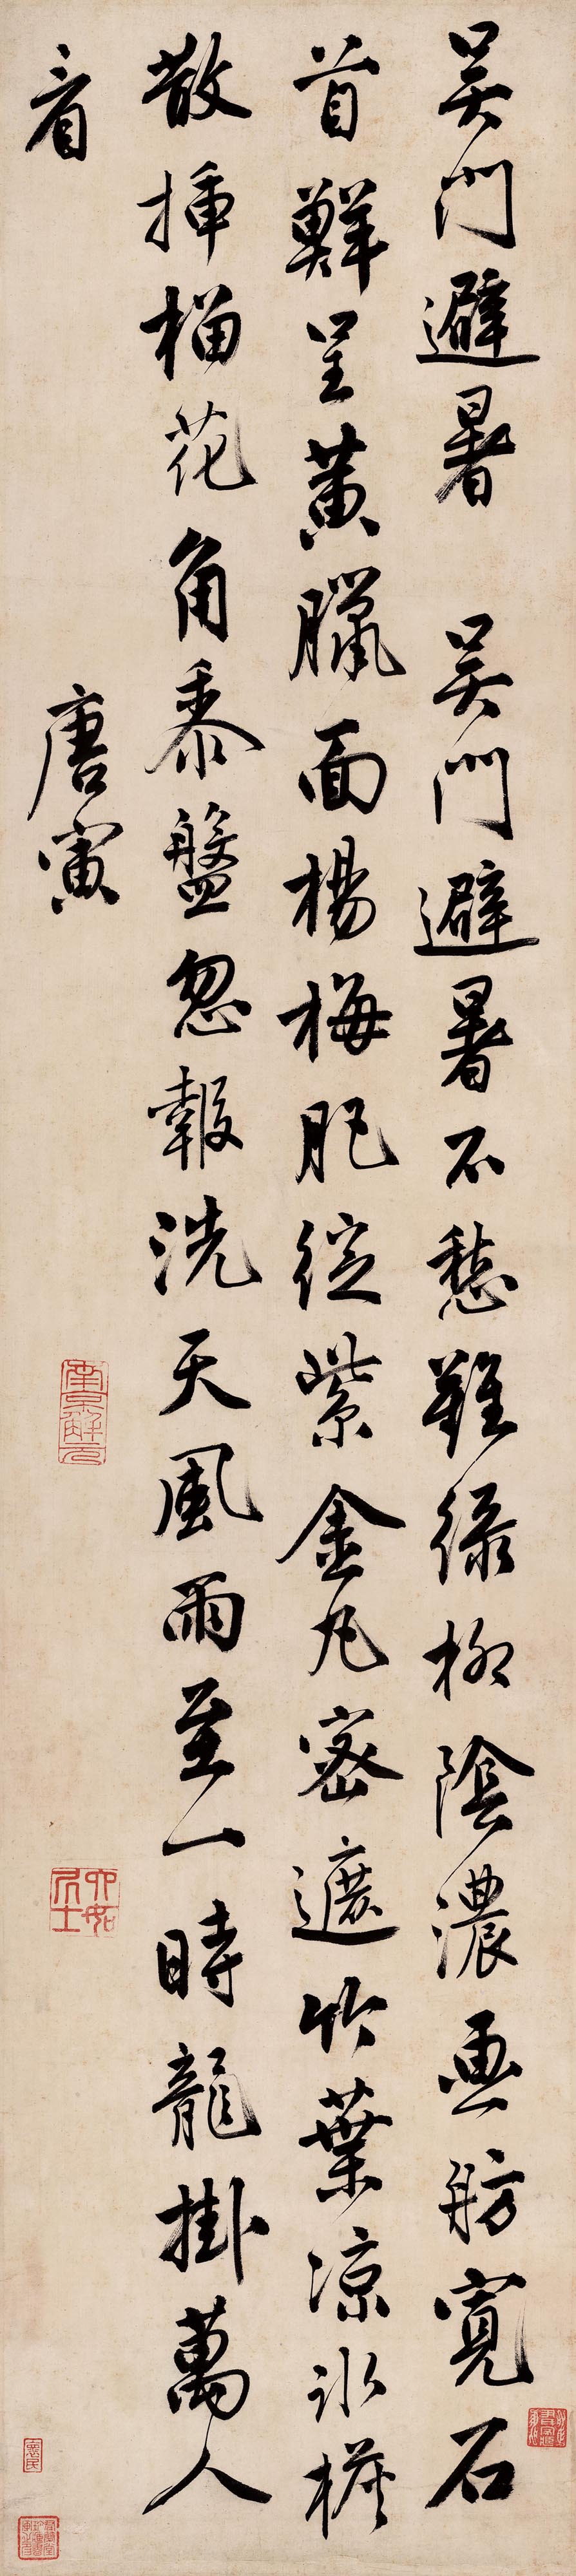 吳門避暑 吳門避暑不愁難綠柳陰濃畫舫寬石
首鮮呈黃臘面楊梅肥綻紫金丸密遮竹葉涼冰
散插榴花角黍盤忽報洗天風雨至一時龍掛萬人
看
唐寅
南京解元
六如居士